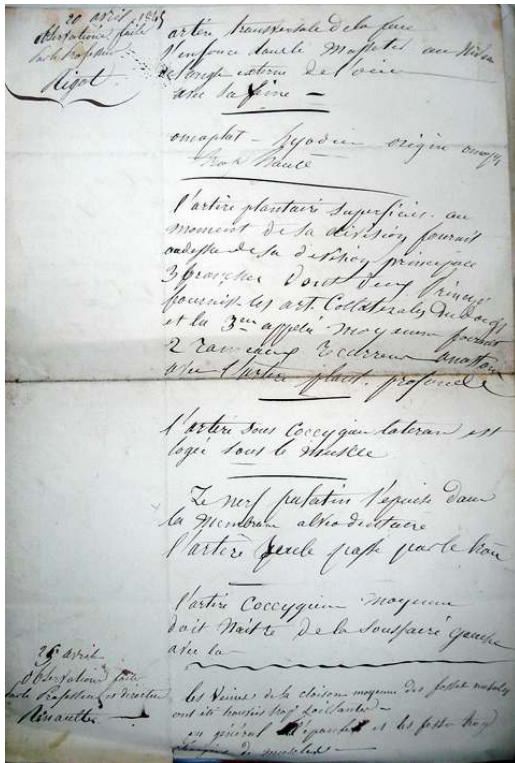 20 avril 1845
observations faites
par le Professeur
Rigot
artère transversale de la face
s'enfonce dans le Masseter au
de l'angle externe de l'œil
avec sa
omoplat - hyoidien origine
trop haute
l'artère plantaire superficie. au
moment de sa division fournit
au dessus de sa division principale
3 branches dont deux princip
fournis. les art. Collaterales du doigt
et la 3me appelée moyenne fournit
2 rameaux recurrens anastom
avec l'artère plant. profonde
l'artère sous Coccygien lateran est
logée sous le muscle
Le nerf palatin s'epuise dans
la Membrane
l'artère seule passe par le trou
l'artère Coccygien moyenne
doit Naitre de la soussacré gauche
avec la
25 avril
observations faites
par le Professeur et directeur
Rénault
les Veines de la cloison moyenne des fosses nasales
ont été trop saillantes
en general et les fosses trop
de muscles